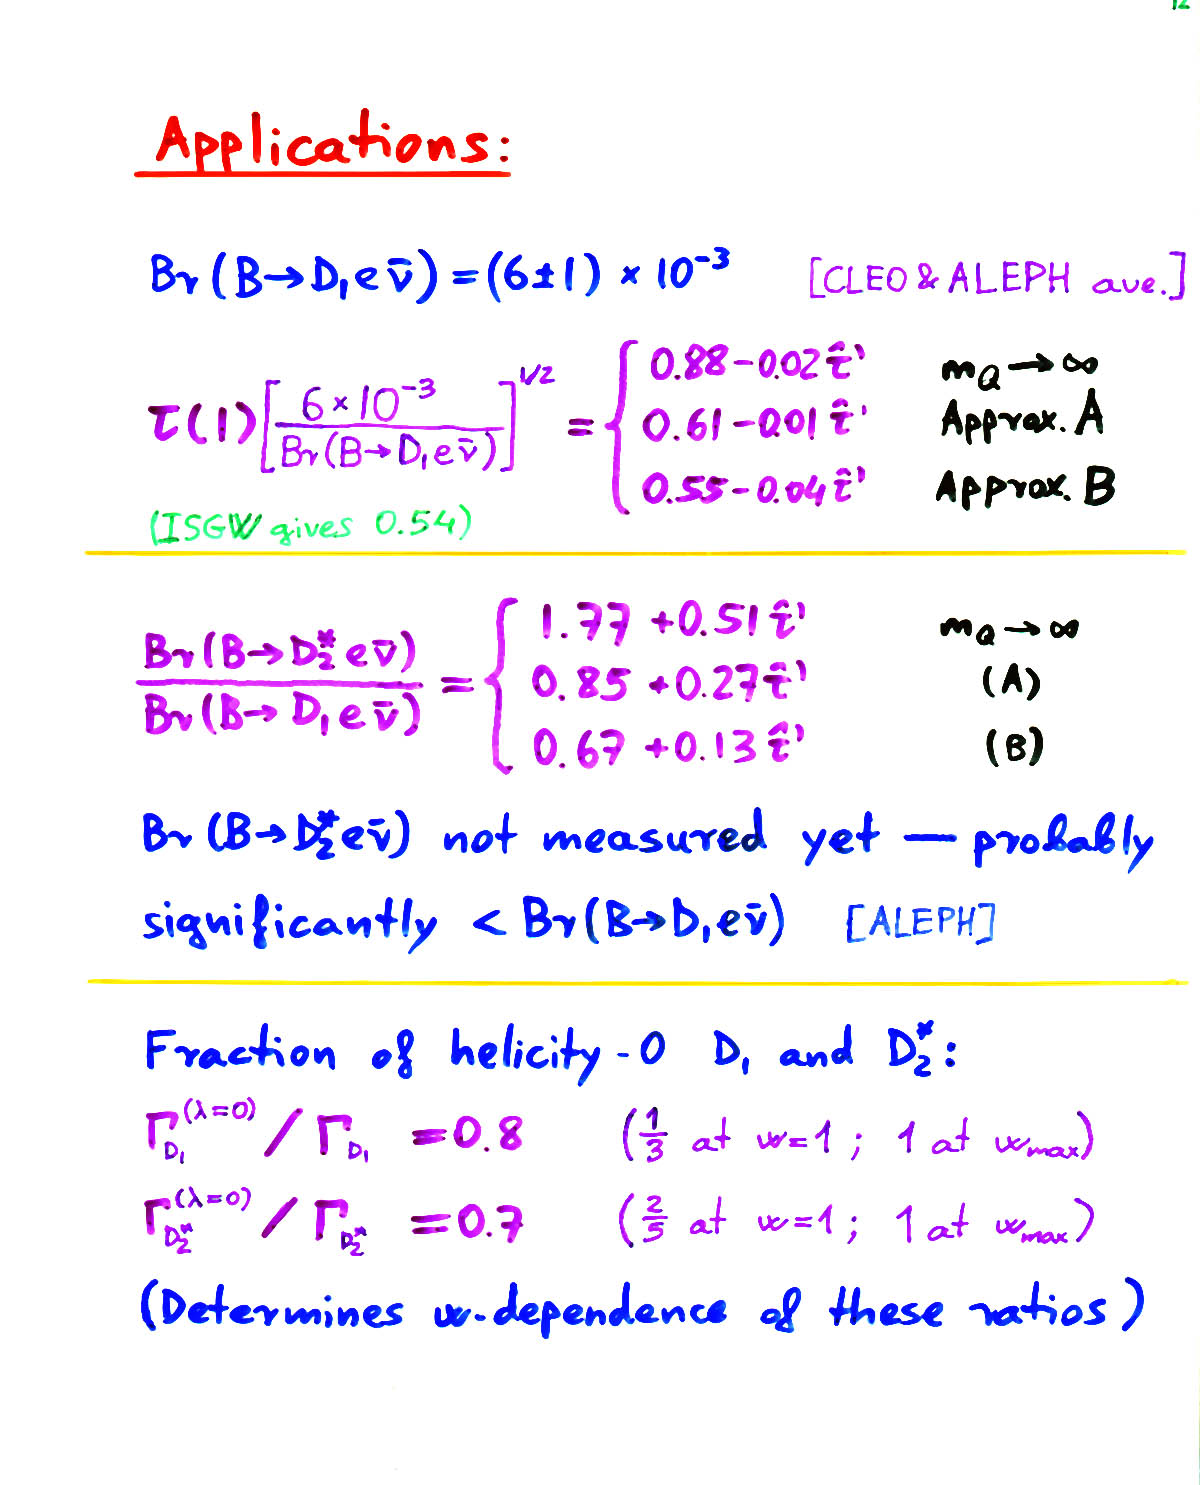 12
Applications:
Br(B→D₁eν̄) = (6±1) × 10⁻³ [CLEO & ALEPH ave.]
τ(1) [6×10⁻³ / Br(B→D₁eν̄)]^1/2 = { 0.88 - 0.02 τ̂' m_Q → ∞
0.61 - 0.01 τ̂' Approx. A
0.55 - 0.04 τ̂' Approx. B
(ISGW gives 0.54)
Br(B→D₂*eν̄) / Br(B→D₁eν̄) = { 1.77 + 0.51 τ̂' m_Q → ∞
0.85 + 0.27 τ̂' (A)
0.67 + 0.13 τ̂' (B)
Br(B→D₂*eν̄) not measured yet — probably
significantly < Br(B→D₁eν̄) [ALEPH]
Fraction of helicity-0 D₁ and D₂*:
Γ_D₁^(λ=0) / Γ_D₁ = 0.8 (1/3 at w=1; 1 at w_max)
Γ_D₂*^(λ=0) / Γ_D₂* = 0.7 (2/5 at w=1; 1 at w_max)
(Determines w-dependence of these ratios)